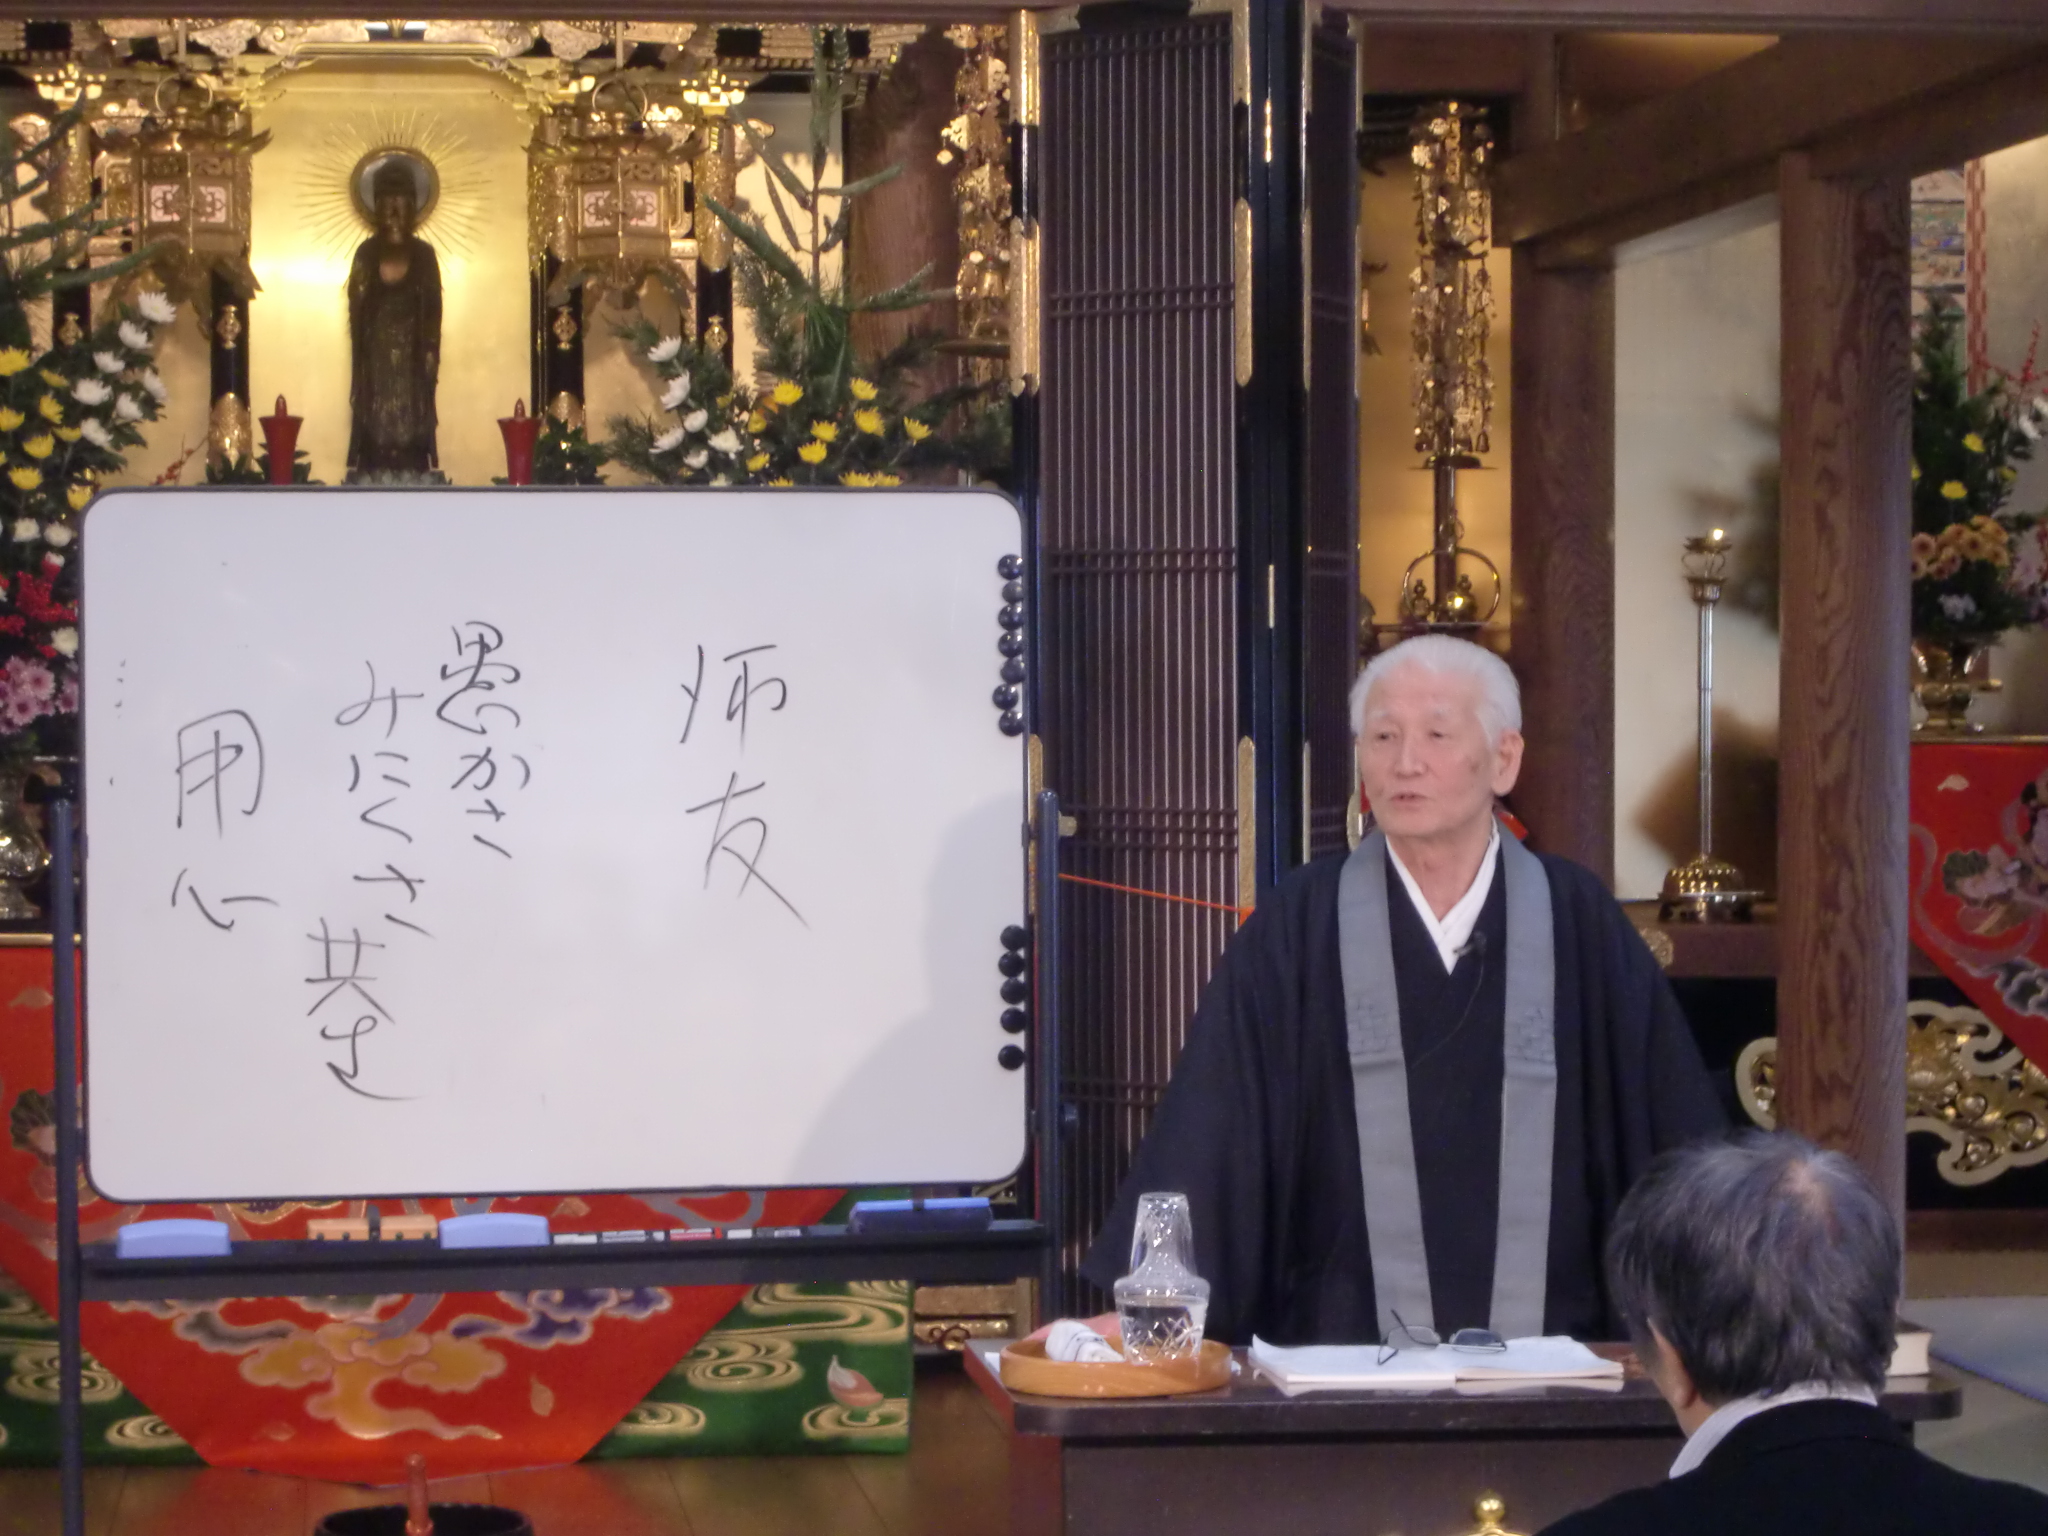 师友
愚かさ
みにくさ
共に
用心